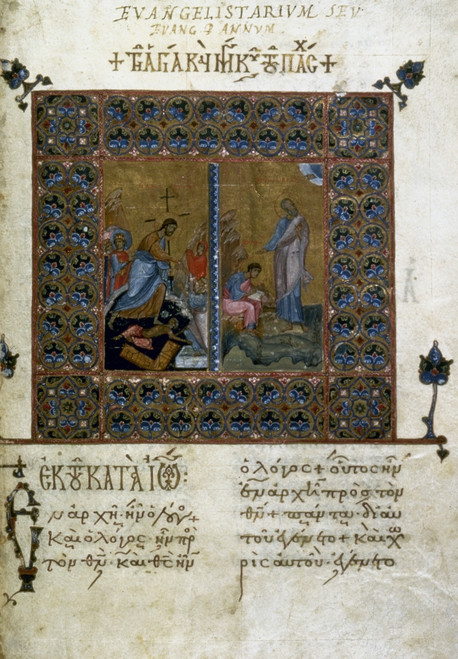 EVANGELISTARIVM SEV
EVANG P ANNVM
ἐκ τοῦ κατὰ Ἰω:
Ἐν ἀρχῇ ἦν ὁ λόγος +
Καὶ ὁ λόγος ἦν πρὸ
τὸν θν· καὶ θς ἦν
ὁ λόγος + οὗτος ἦν
ἐν ἀρχῇ πρὸς τὸν
θν + πάντα δι αυ
τοῦ ἐγένετο + καὶ χω
ρὶς αὐτοῦ ἐγένετο